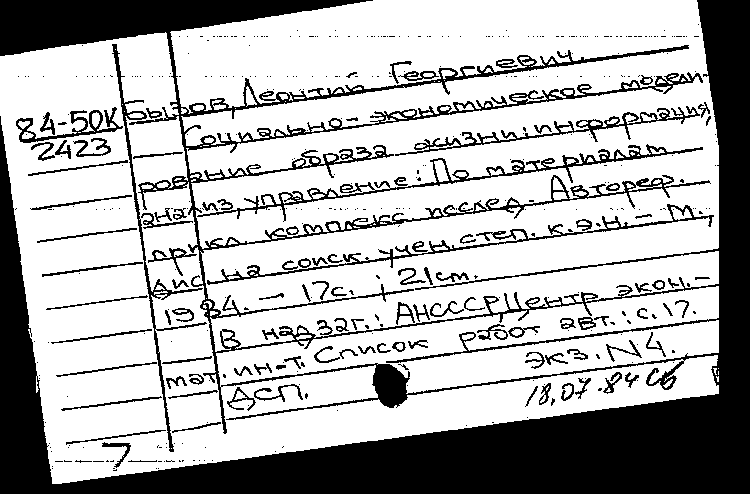 84-50К
2423
Бызов, Леонтий Георгиевич.
Социально-экономическое модели-
рование образа жизни: информация,
анализ, управление: По материалам
прикл. комплекс. исслед. Автореф.
дис. на соиск. учен. степ. к.э.н. – М.,
1984. – 17с. ; 21см.
В надзаг.: АНСССР, Центр. экон.-
мат. ин-т. Список работ авт.: с.17.
ДСП. экз. N4.
18.07.84
7